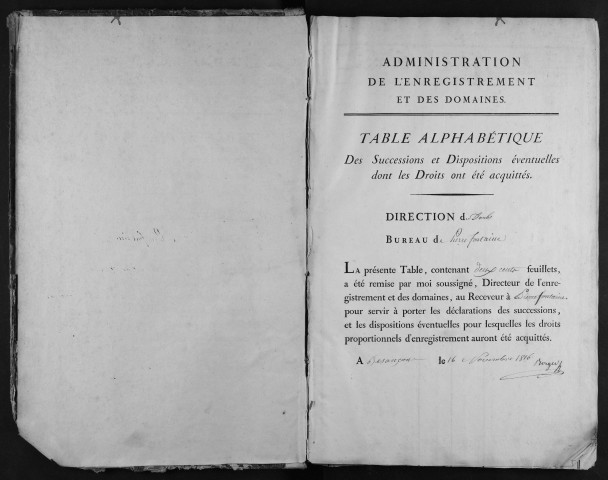 ADMINISTRATION
DE L'ENREGISTREMENT
ET DES DOMAINES.
TABLE ALPHABÉTIQUE
Des Successions et Dispositions éventuelles
dont les Droits ont été acquittés.
DIRECTION du Doubs
BUREAU de Pierrefontaine
LA présente Table, contenant deux cents feuillets,
a été remise par moi soussigné, Directeur de l'enre-
gistrement et des domaines, au Receveur à Pierrefontaine
pour servir à porter les déclarations des successions,
et les dispositions éventuelles pour lesquelles les droits
proportionnels d'enregistrement auront été acquittés.
A Besançon le 16 1816